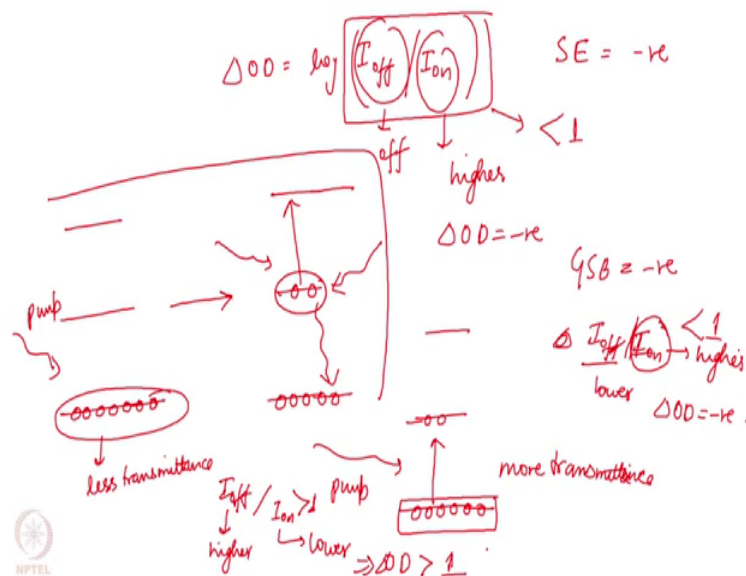 ΔOD = log (I_off / I_on)
SE = -ve
< 1
off
higher
ΔOD = -ve
GSB = -ve
pump
I_off / I_on < 1
→ higher
lower
ΔOD = -ve
less transmittance
I_off / I_on > 1
pump
more transmittance
higher
lower
⇒ ΔOD > 1
NPTEL